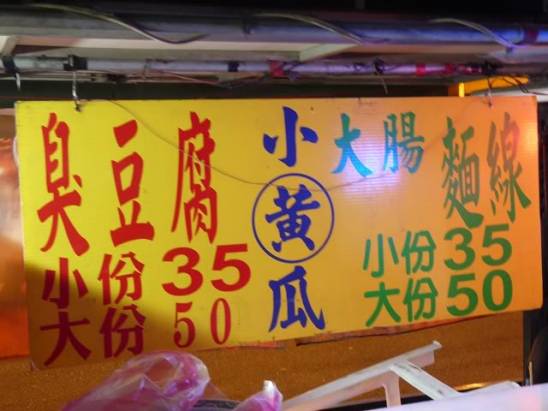 臭豆腐
小份35
大份50
小黃瓜
大腸麵線
小份35
大份50